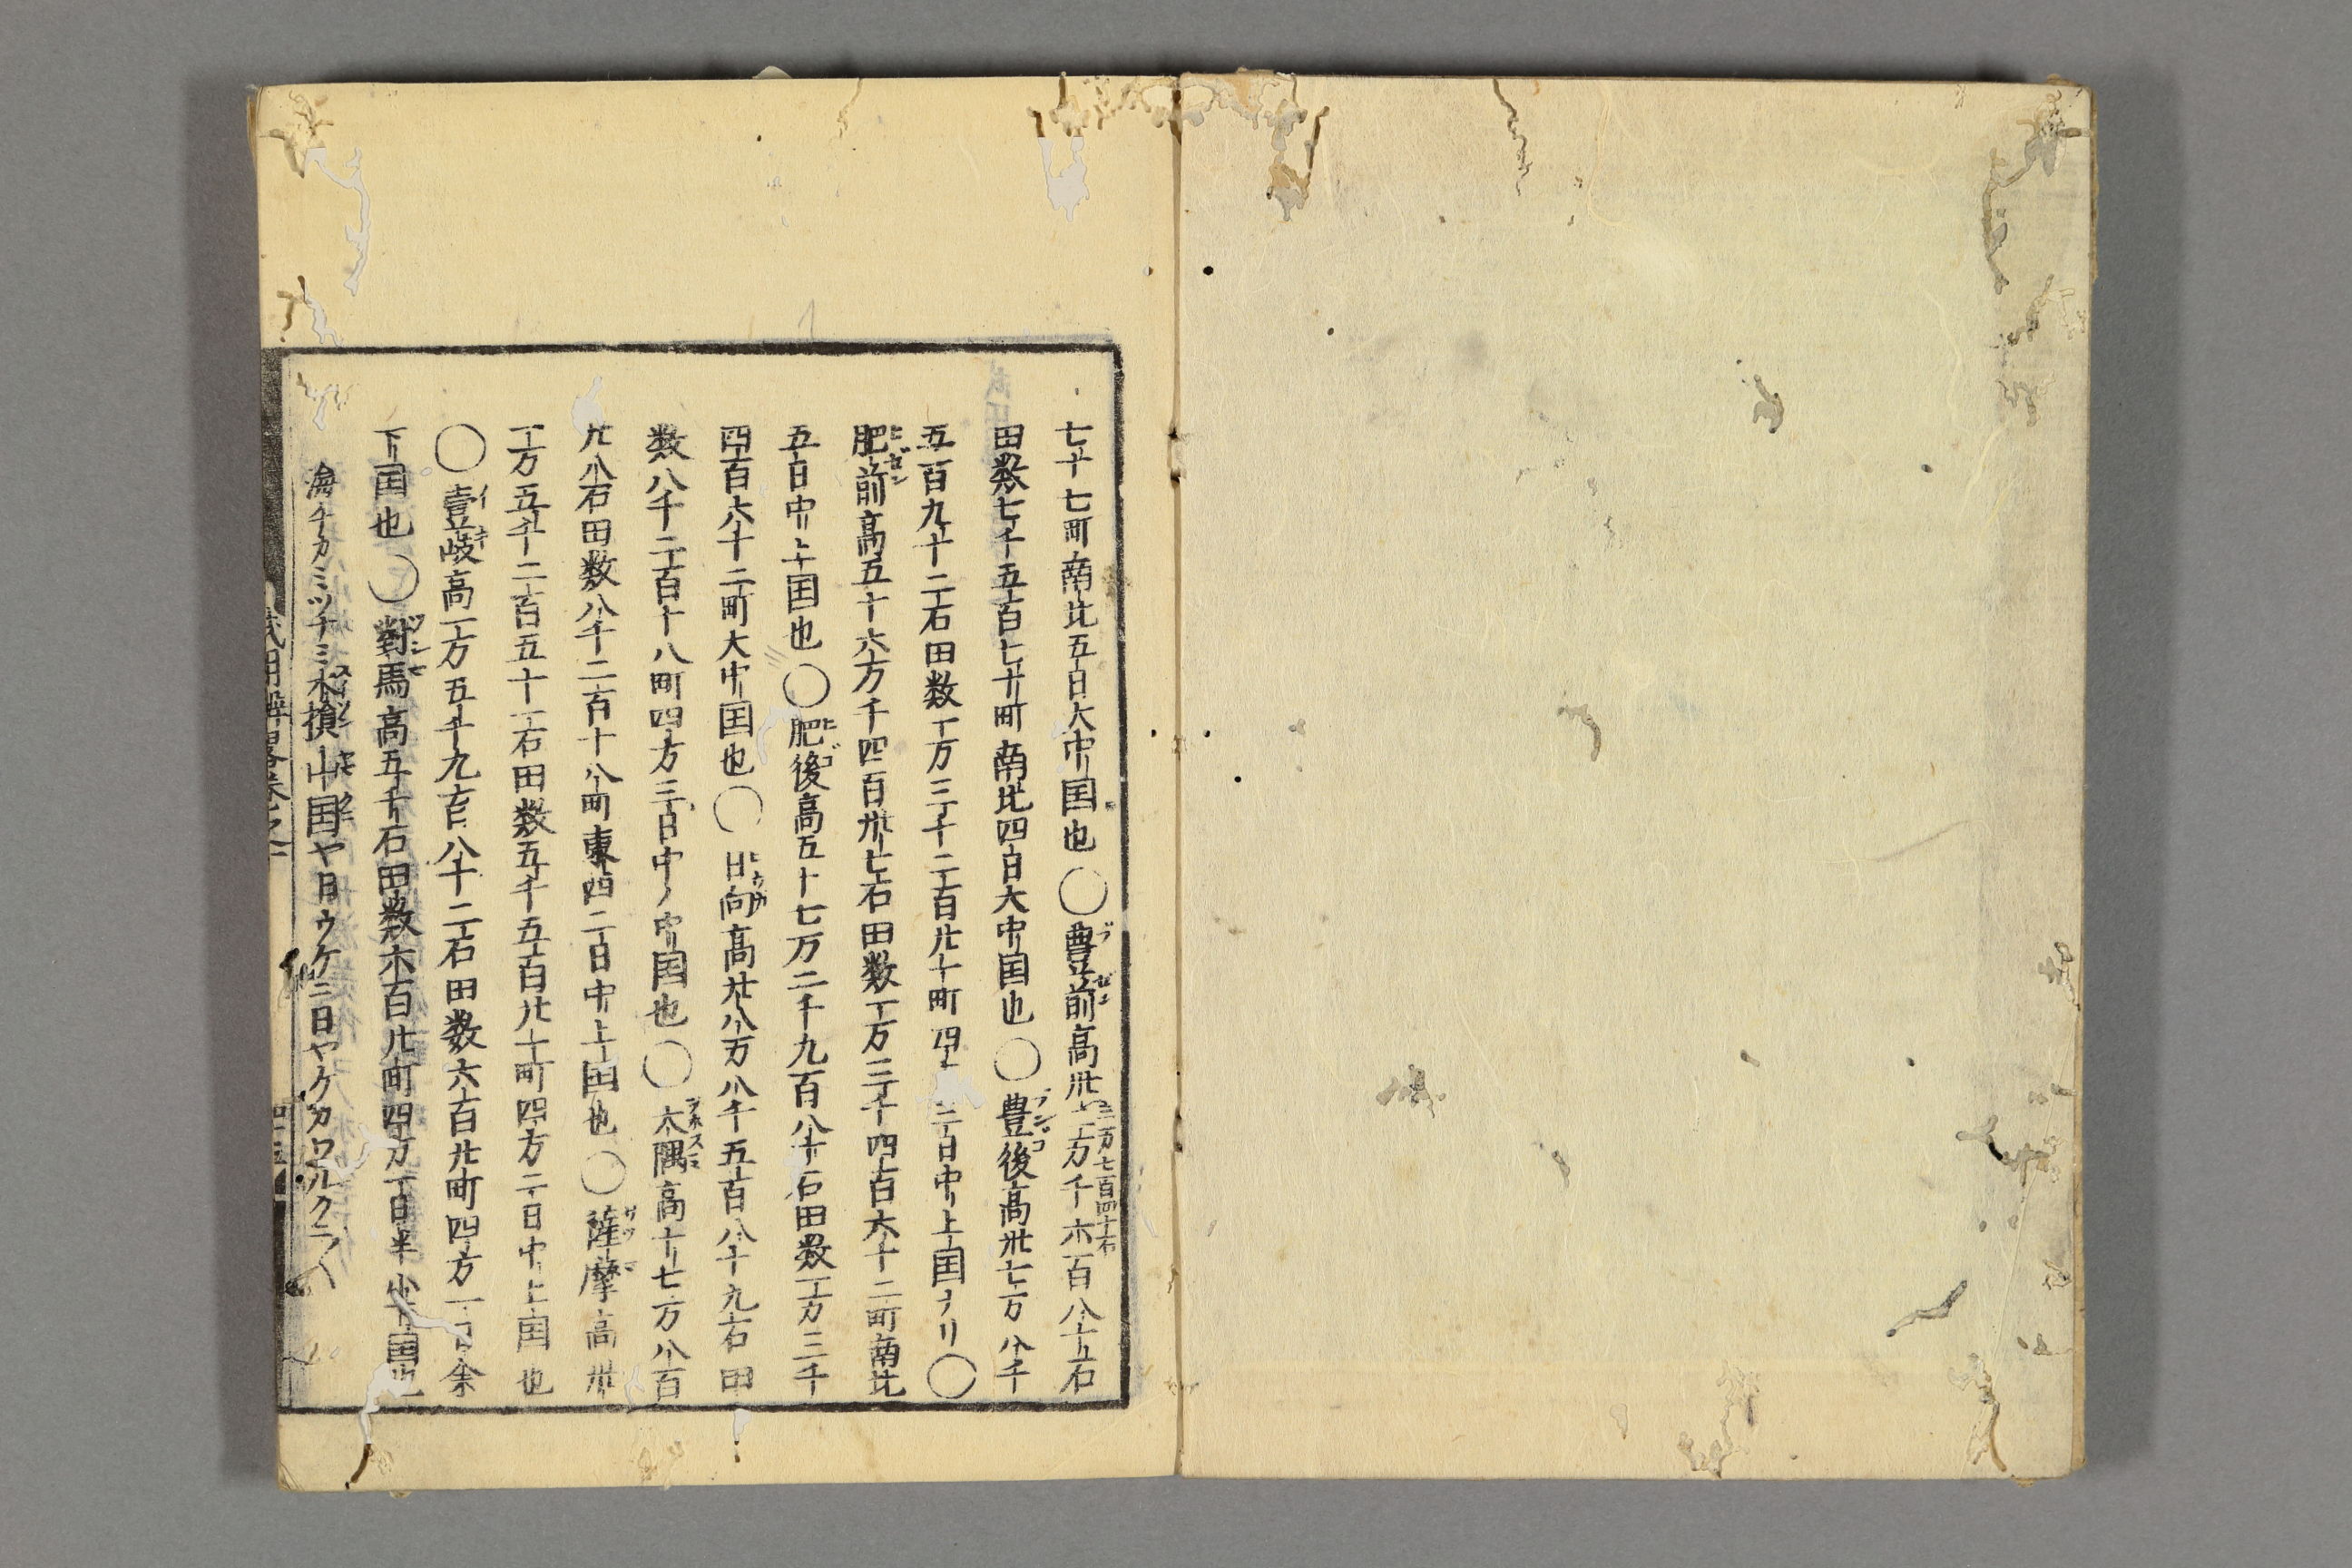 七千七町南北五日大中国也○豊前高卅二万千六百八十五石
三万七百四十石
田数七千五百七十町南北四日大中国也○豊後高卅七万八千
五百九十二石田数一万三千二百廿町四 二日中上国ナリ○
肥前高五十六万千四百卅七石田数一万三千四百六十二町南北
五日中上国也○肥後高五十七万二千九百八十石田数一万三千
四百六十二町大中国也○日向高廿八万八千五百八十九石田
数八千二百十八町四方三日中ノ中国也○大隅高十七万八百
廿八石田数八千二百十八町東西二日中上国也○薩摩高卅
一万五千二百五十一石田数五千五百廿町四方二日中上国也
○壹岐高一万五千九百八十二石田数六百廿町四方一日余
下国也○對馬高五千石田数六百廿町四方一日半小下国也
海チカミツナミ水損山国ヤ日ウケニ日ヤケカワルクニ〱